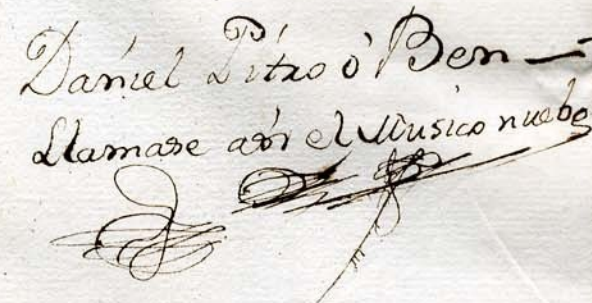 Daniel Pitzo ó Ben —
Llamase asi el Musico nuebo